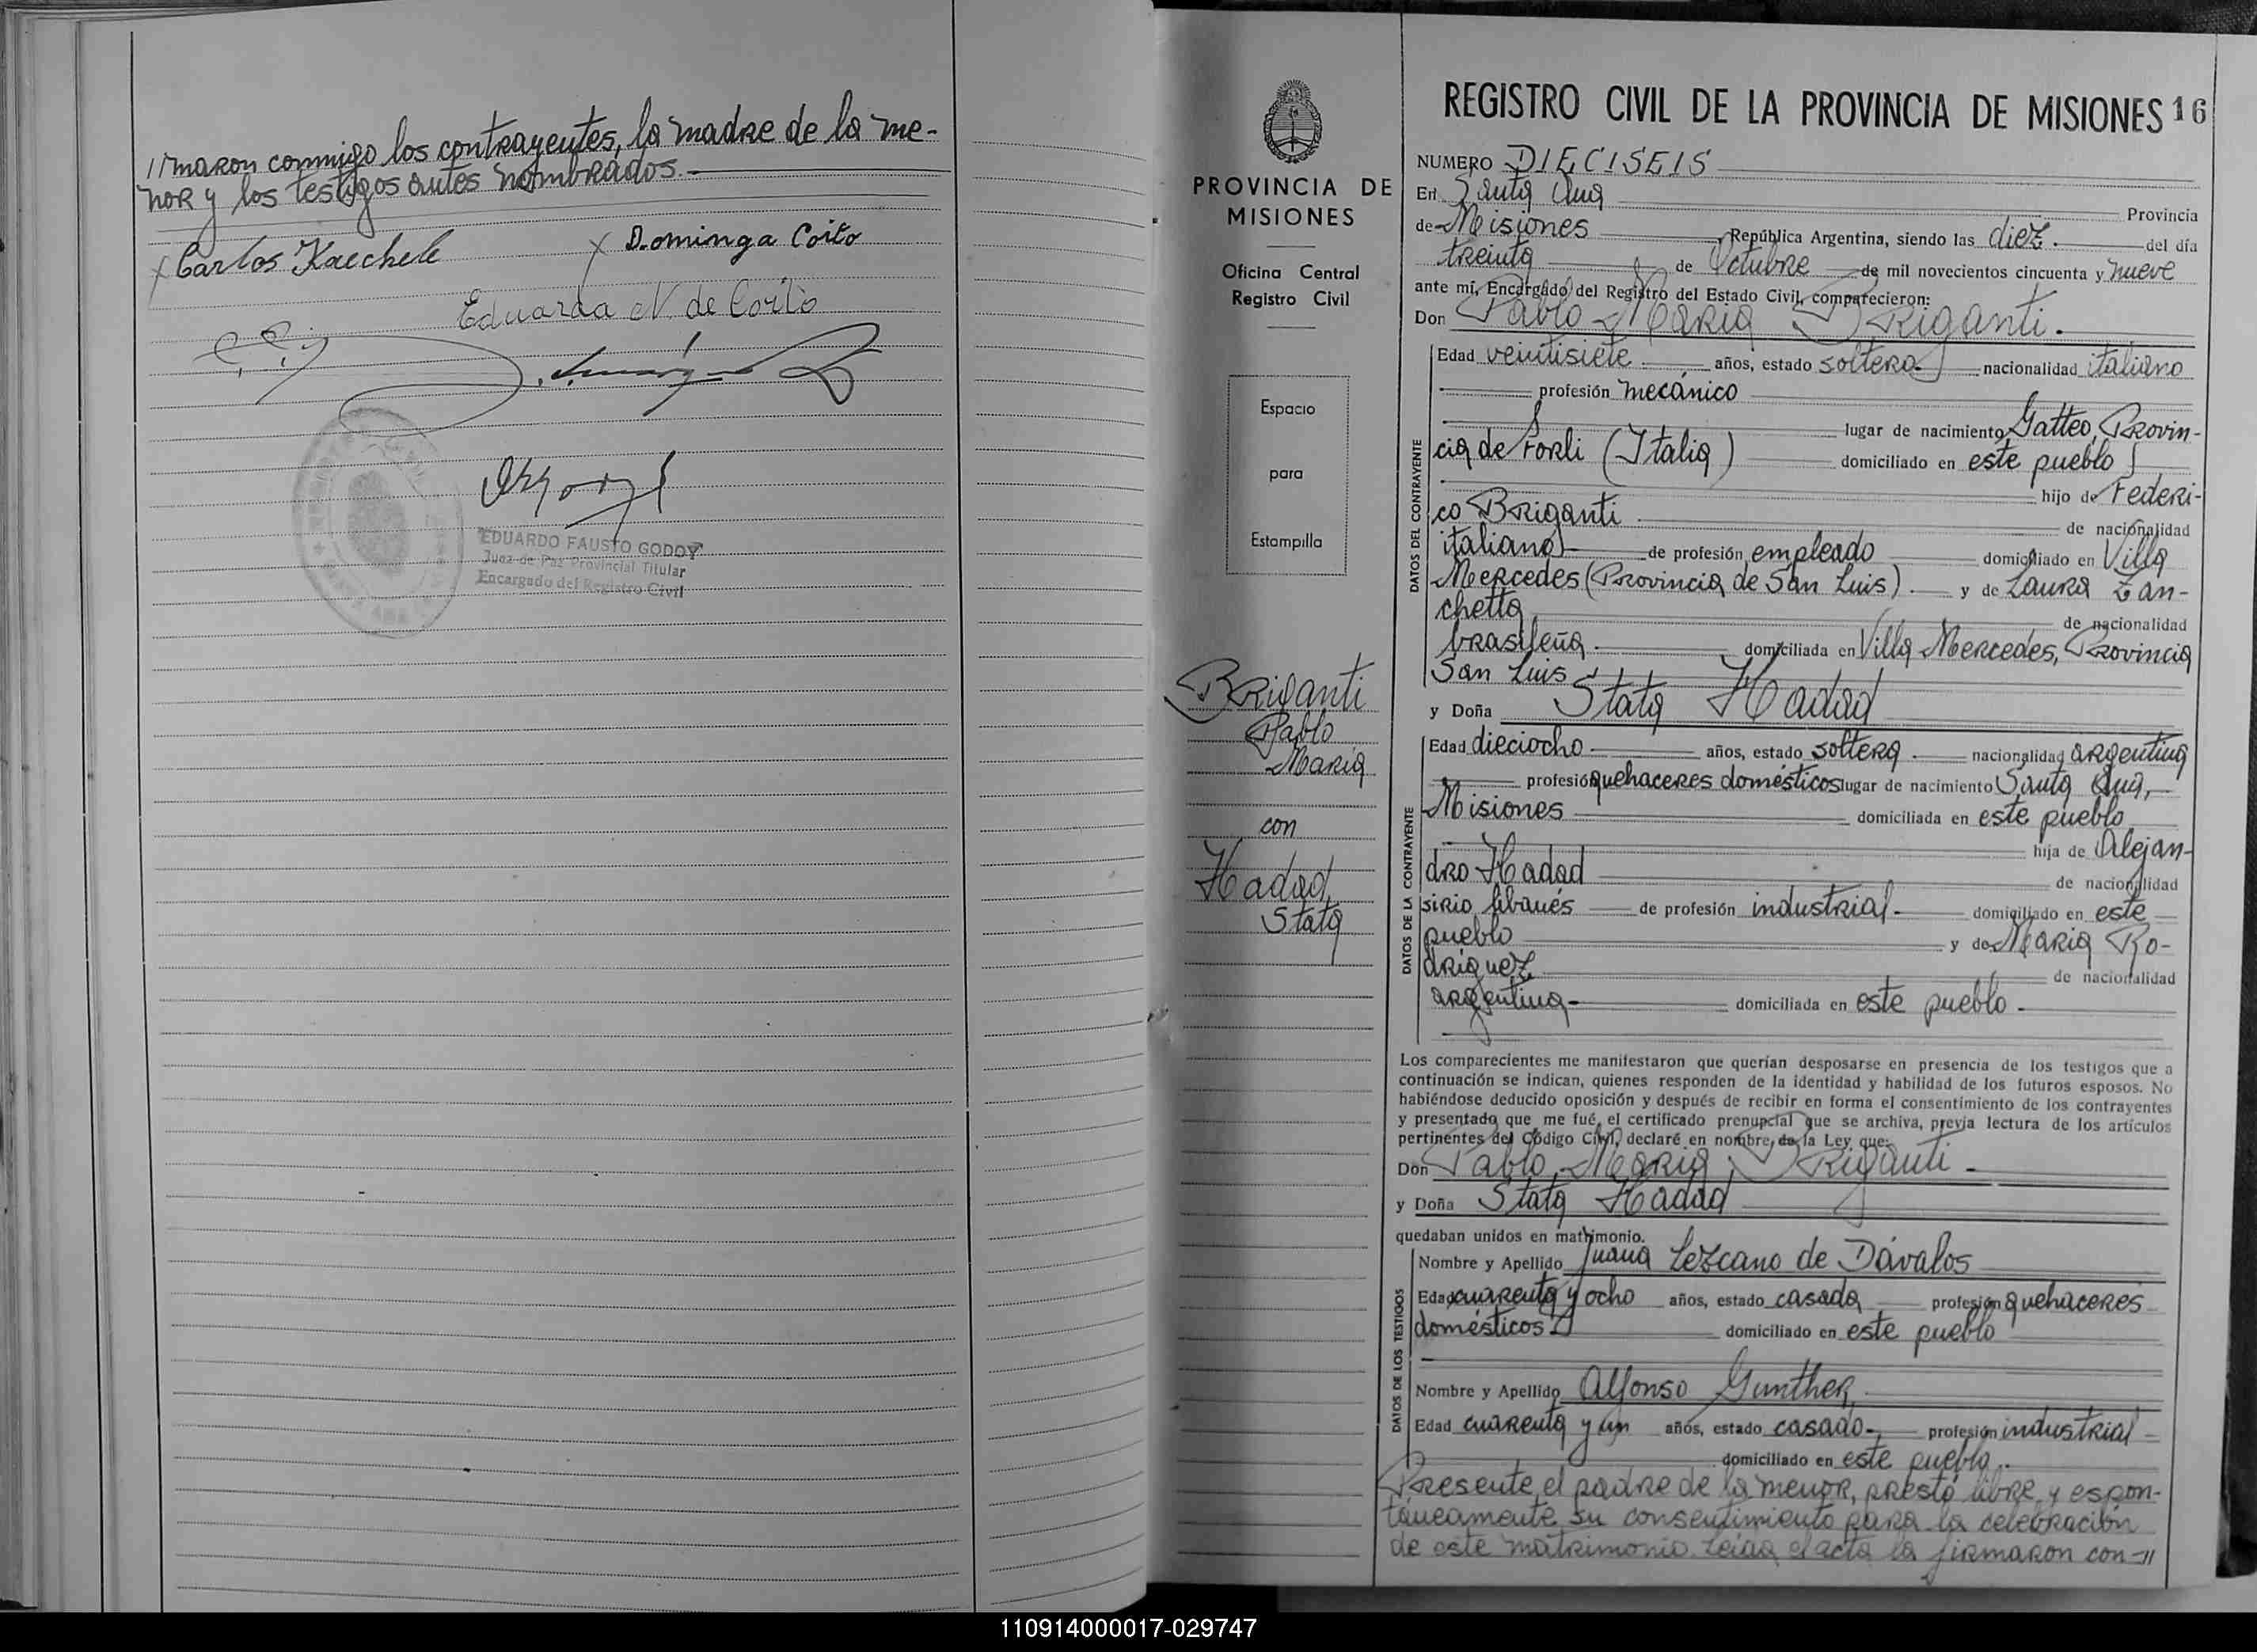 //maron conmigo los contrayentes, la madre de la me-
nor y los testigos antes nombrados.-
x Carlos Kaechele
x Dominga Coito
Eduarda N. de Coito
EDUARDO FAUSTO GODOY
Juez de Paz Provincial Titular
Encargado del Registro Civil
PROVINCIA DE
MISIONES
Oficina Central
Registro Civil
Espacio
para
Estampilla
Briganti
Pablo
Maria
con
Hadad,
Stata
REGISTRO CIVIL DE LA PROVINCIA DE MISIONES 16
NUMERO DIECISEIS
En Santa Ana Provincia
de Misiones, República Argentina, siendo las diez. del día
treinta de Octubre de mil novecientos cincuenta y nueve
ante mí, Encargado del Registro del Estado Civil, comparecieron:
Don Pablo Maria Briganti.
DATOS DEL CONTRAYENTE
Edad veintisiete años, estado soltero. nacionalidad italiano
profesión mecánico
lugar de nacimiento Gatteo, Provin-
cia de Forli (Italia) domiciliado en este pueblo
hijo de Federi-
co Briganti de nacionalidad
italiano de profesión empleado domiciliado en Villa
Mercedes (Provincia de San Luis). y de Laura Zan-
chetta de nacionalidad
brasileña. domiciliada en Villa Mercedes, Provincia
San Luis
y Doña Stata Hadad
DATOS DE LA CONTRAYENTE
Edad dieciocho años, estado soltera. nacionalidad argentina
profesión quehaceres domésticos lugar de nacimiento Santa Ana,
Misiones domiciliada en este pueblo
hija de Alejan-
dro Hadad de nacionalidad
sirio libanés de profesión industrial. domiciliado en este
pueblo y de Maria Ro-
driguez de nacionalidad
argentina- domiciliada en este pueblo.
Los comparecientes me manifestaron que querían desposarse en presencia de los testigos que a
continuación se indican, quienes responden de la identidad y habilidad de los futuros esposos. No
habiéndose deducido oposición y después de recibir en forma el consentimiento de los contrayentes
y presentado que me fué, el certificado prenupcial que se archiva, previa lectura de los artículos
pertinentes del Código Civil, declaré en nombre de la Ley que:
Don Pablo Maria Briganti
y Doña Stata Hadad
quedaban unidos en matrimonio.
DATOS DE LOS TESTIGOS
Nombre y Apellido Juana Lezcano de Dávalos
Edad cuarenta y ocho años, estado casada profesión quehaceres
domésticos. domiciliado en este pueblo
Nombre y Apellido Alfonso Gunther,
Edad cuarenta y un años, estado casado-, profesión industrial
domiciliado en este pueblo..
Presente el padre de la menor, prestó libre y espon-
táneamente su consentimiento para la celebración
de este matrimonio. Leída el acta la firmaron con-//
110914000017-029747